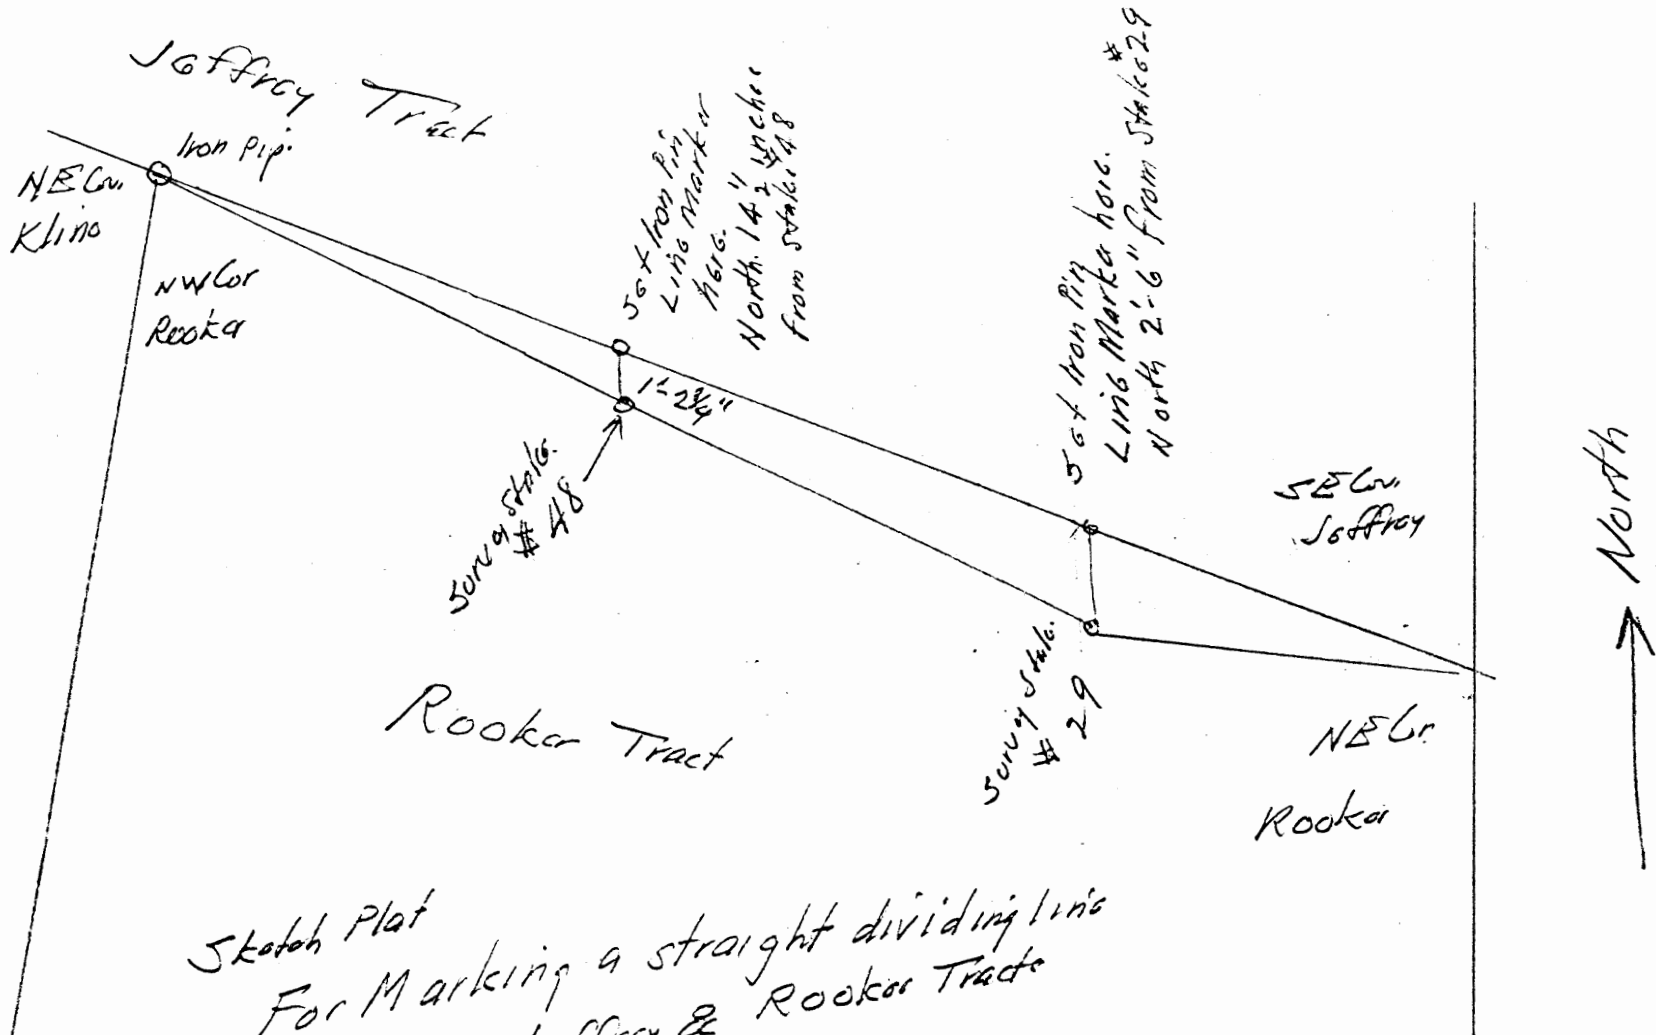 Jeffrey Tract
Iron Pip.
NE Cor.
Kline
NW Cor
Rooker
Set Iron Pin
Line Marker
here.
North. 14
from Stake 48
1'-2¾"
Survey Stake.
# 48
Set Iron Pin
Line Marker here.
North 2'-6" from Stake #29
SE Cor.
Jeffrey
North
Survey Stake.
# 29
Rooker Tract
NE Cr.
Rooker
Sketch Plat
For Marking a straight dividing line
& Rooker Tracts